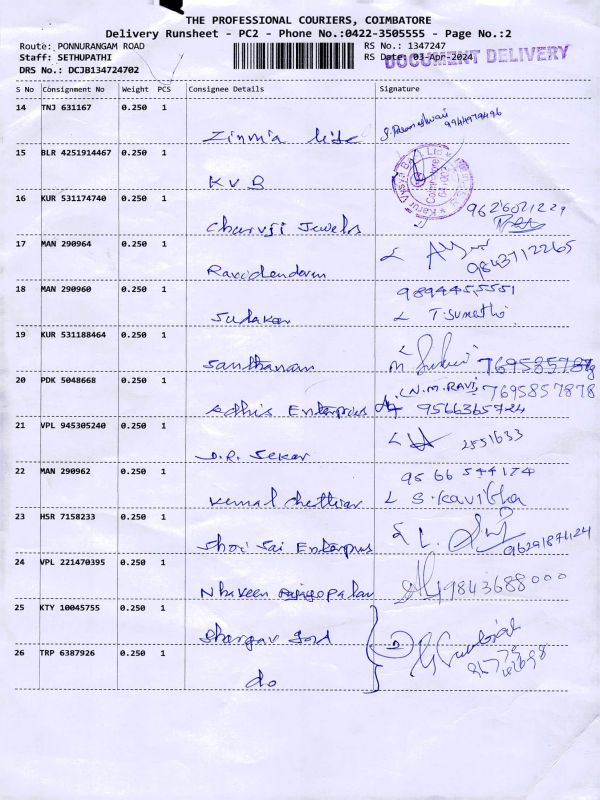 THE PROFESSIONAL COURIERS, COIMBATORE
Delivery Runsheet - PC2 - Phone No.:0422-3505555 - Page No.:2
Route: PONNURANGAM ROAD RS No.: 1347247
Staff: SETHUPATHI RS Date: 03-Apr-2024
DOCUMENT DELIVERY
DRS No.: DCJB134724702
S No Consignment No Weight PCS Consignee Details Signature
14 TNJ 631167 0.250 1
Zinmia life
15 BLR 4251914467 0.250 1
KVB
16 KUR 531174740 0.250 1
Jewels
17 MAN 290964 0.250 1
98437112265
18 MAN 290960 0.250 1 9894455551
Sudakar T. Sumathi
19 KUR 531188464 0.250 1
Santhanam
20 PDK 5048668 0.250 1 (N.M.RAVI) 7695857878
Adhis Enterprises 9566365724
21 VPL 945305240 0.250 1 2551633
D.R. Sekar
22 MAN 290962 0.250 1 9566544174
Chettiar S. Kavitha
23 HSR 7158233 0.250 1
Shri Sai Enterprises
24 VPL 221470395 0.250 1
Nhaveen 9843688000
25 KTY 10045755 0.250 1
26 TRP 6387926 0.250 1
do